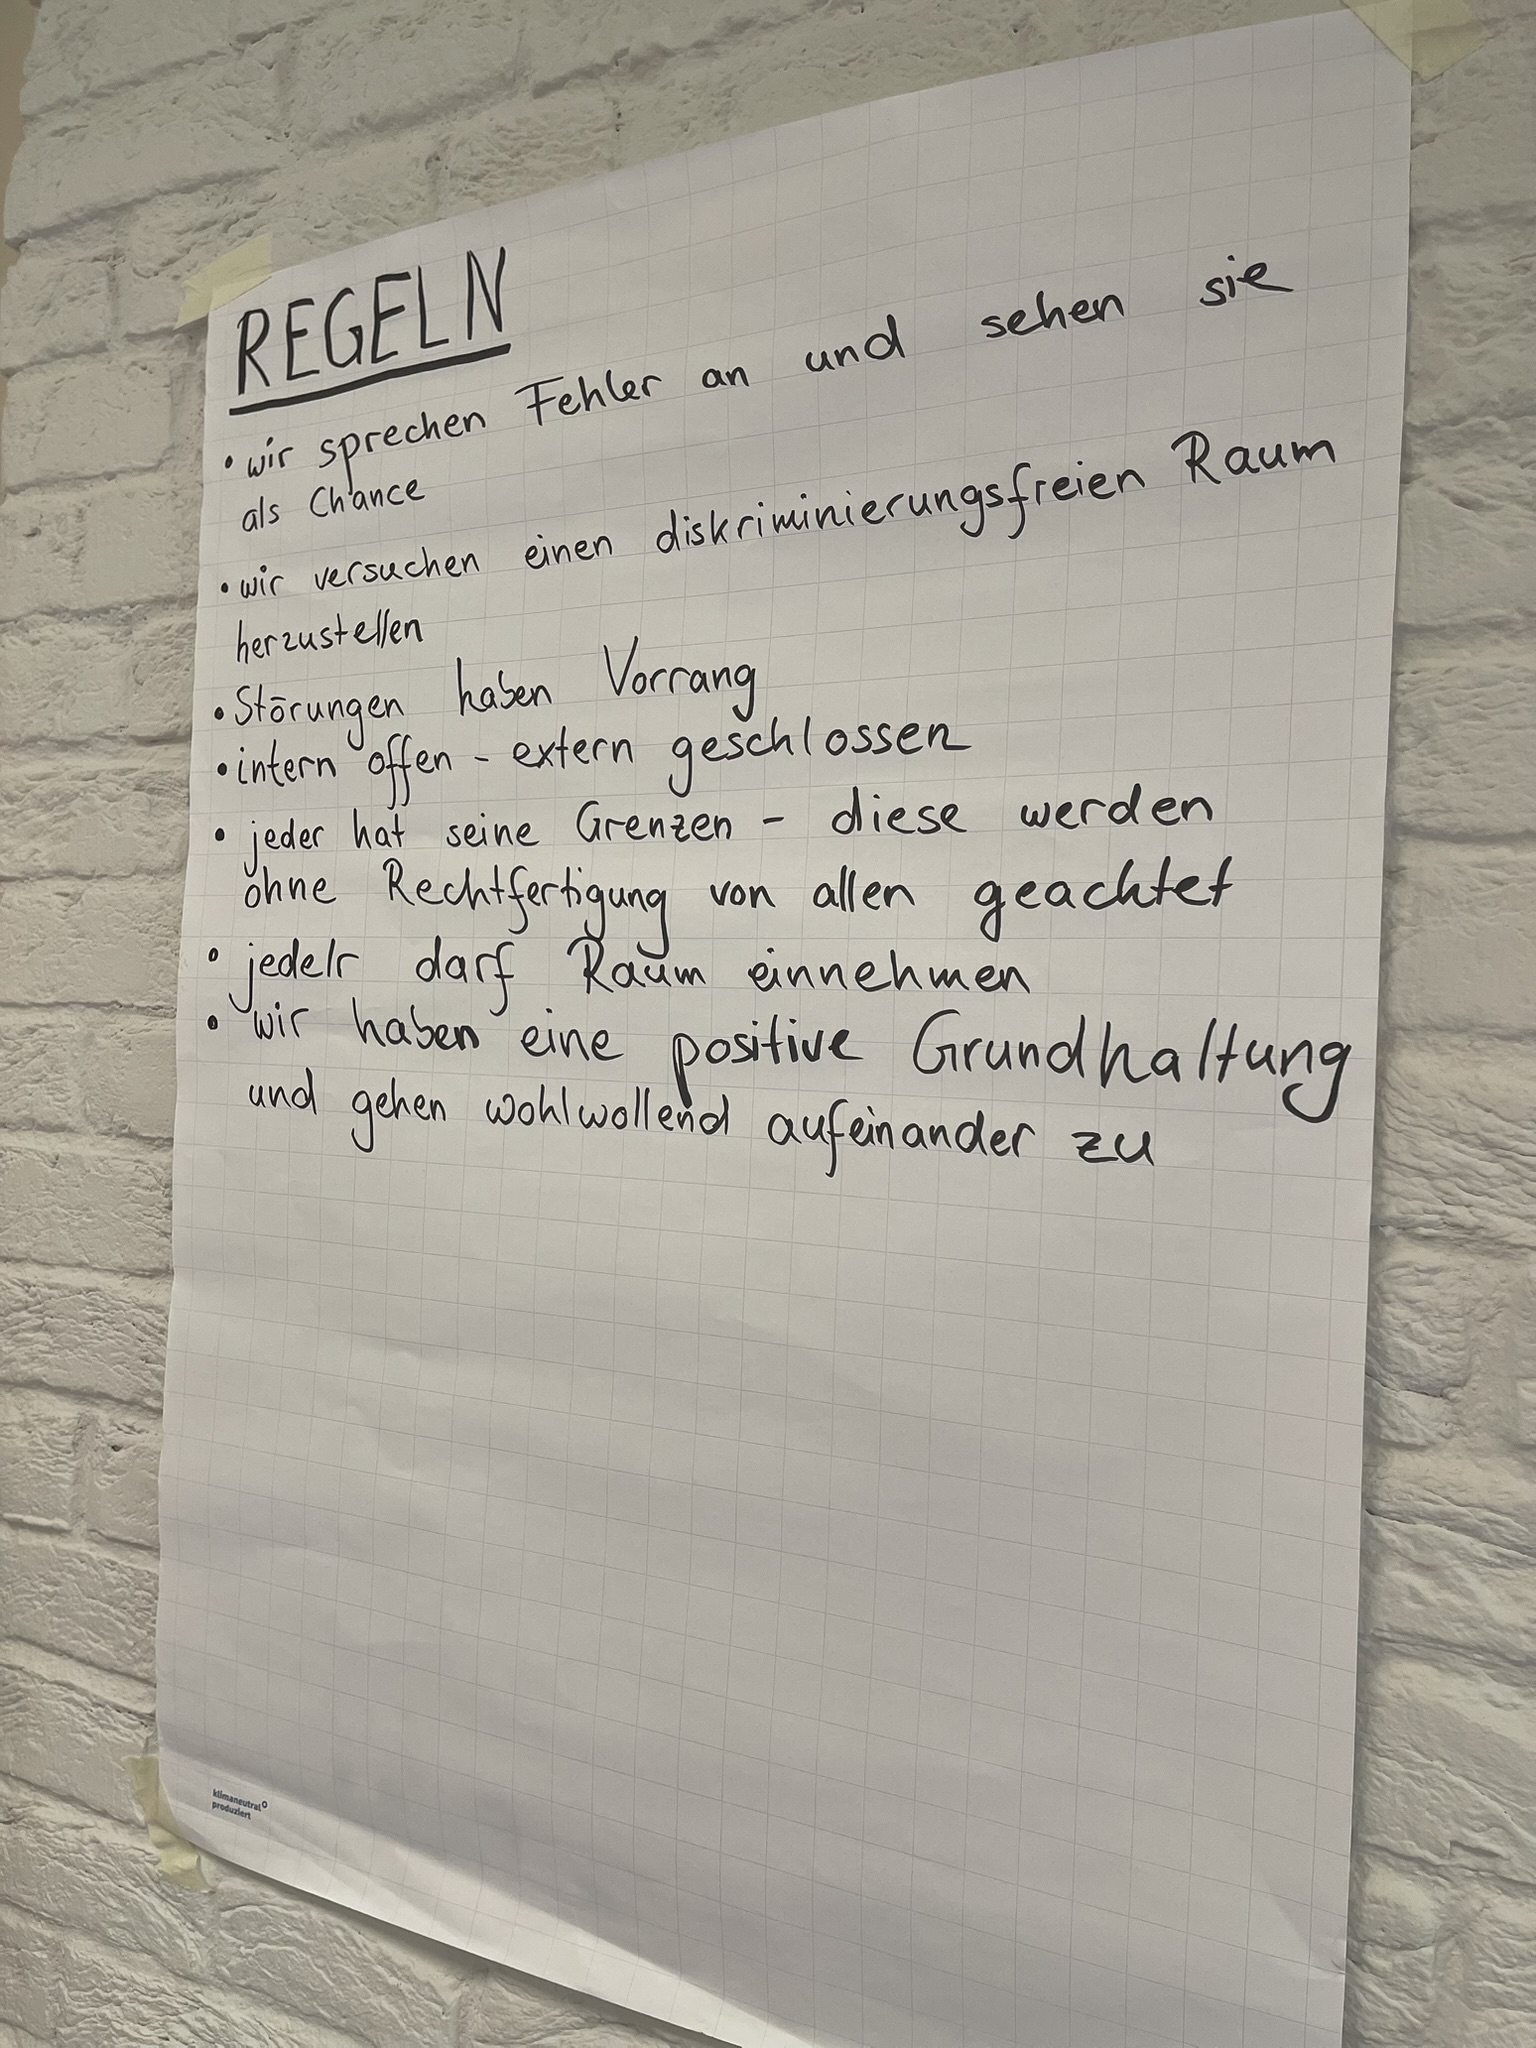 REGELN
• wir sprechen Fehler an und sehen sie
als Chance
• wir versuchen einen diskriminierungsfreien Raum
herzustellen
• Störungen haben Vorrang
• intern offen - extern geschlossen
• jeder hat seine Grenzen - diese werden
ohne Rechtfertigung von allen geachtet
• jede/r darf Raum einnehmen
• wir haben eine positive Grundhaltung
und gehen wohlwollend aufeinander zu
klimaneutral
produziert